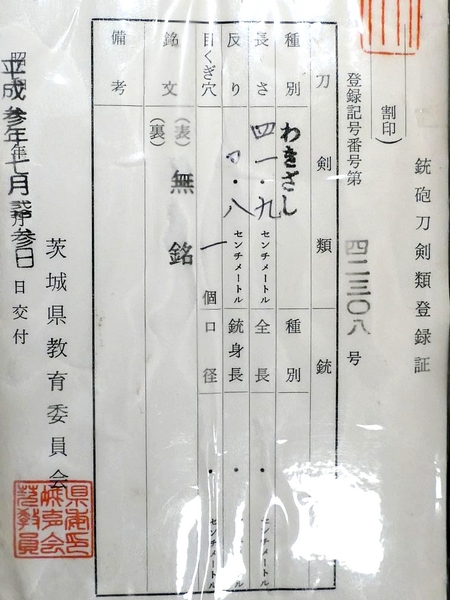 銃砲刀剣類登録証
(割印)
登録記号番号第 四二三〇八 号
刀剣類 銃
種別 わきざし 種別
長さ 四一・九 センチメートル 全長 ・ センチメートル
反り ・八 センチメートル 銃身長 ・
目くぎ穴 一 個 口径 ・ センチメートル
銘文 (表) 無銘
(裏)
備考
平成参年七月 参日 日交付
茨城県教育委員会